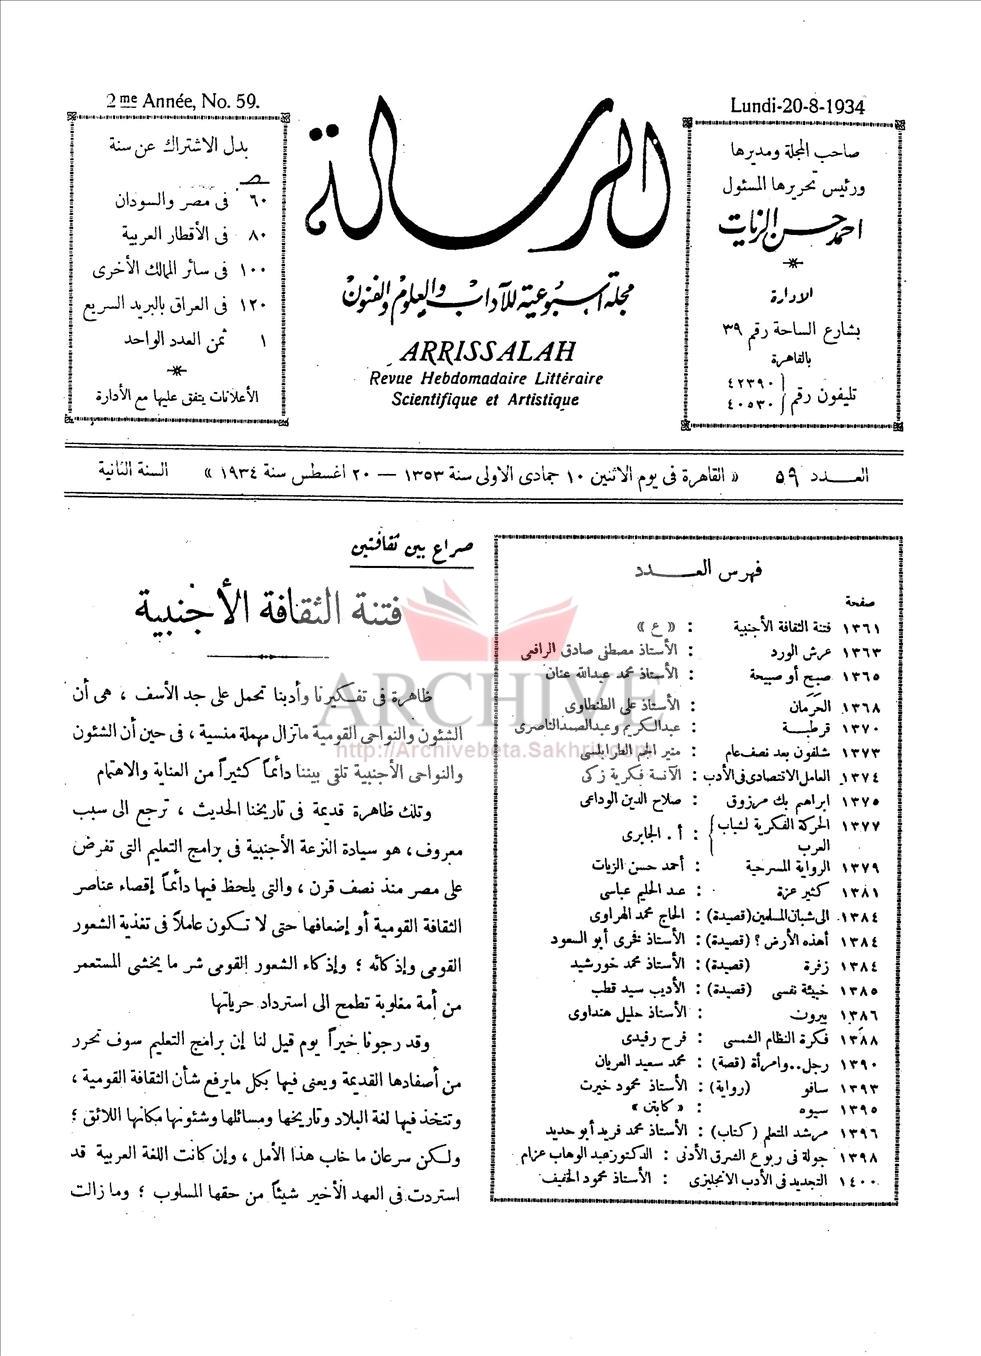 2me Année, No. 59.
Lundi-20-8-1934
صاحب المجلة ومديرها
ورئيس تحريرها المسئول
احمد حسن الزيات
الادارة
بشارع الساحة رقم ٣٩
بالقاهرة
تليفون رقم ٤٢٣٩٠
٤٠٥٣٠
الرسالة
مجلة أسبوعية للآداب والعلوم والفنون
ARRISSALAH
Revue Hebdomadaire Littéraire
Scientifique et Artistique
بدل الاشتراك عن سنة
ص
٦٠ فى مصر والسودان
٨٠ فى الأقطار العربية
١٠٠ فى سائر الممالك الأخرى
١٢٠ فى العراق بالبريد السريع
١ ثمن العدد الواحد
الأعلانات يتفق عليها مع الأدارة
العـــدد ٥٩ « القاهرة فى يوم الاثنين ١٠ جمادى الاولى سنة ١٣٥٣ — ٢٠ اغسطس سنة ١٩٣٤ » السنة الثانية
فهرس العـــدد
صفحة
١٣٦١ فتنة الثقافة الأجنبية : « ع »
١٣٦٣ عرش الورد : الأستاذ مصطفى صادق الرافعى
١٣٦٥ صبح أو صبيحة : الأستاذ محمد عبدالله عنان
١٣٦٨ الحَرَمان : الأستاذ على الطنطاوى
١٣٧٠ قرطبـــة : عبدالكريم وعبدالصمدالناصرى
١٣٧٣ شلفون بعد نصف عام : منير العجم الطرابلسى
١٣٧٤ العامل الاقتصادى فى الأدب : الآنسة فكرية زكى
١٣٧٥ ابراهيم بك مرزوق : صلاح الدين الوداعى
١٣٧٧ الحركة الفكرية لشباب العرب : أ . الجابرى
١٣٧٩ الرواية المسرحية : أحمد حسن الزيات
١٣٨١ كثير عزة : عبد الحليم عباسى
١٣٨٤ الى شبان المسلمين (قصيدة) : الحاج محمد الهراوى
١٣٨٤ أهذه الأرض ؟ (قصيدة) : الأستاذ فخرى أبو السعود
١٣٨٤ زفرة (قصيدة) : الأستاذ محمد خورشيد
١٣٨٥ خبيئة نفسى (قصيدة) : الأديب سيد قطب
١٣٨٦ بيرون : الأستاذ خليل هنداوى
١٣٨٨ فكرة النظام الشمسى : فرح رفيدى
١٣٩٠ رجل..وامرأة (قصة) : محمد سعيد العريان
١٣٩٣ سافو (رواية) : الأستاذ محمود خيرت
١٣٩٥ سيوه : « كابتن »
١٣٩٦ مرشد المتعلم (كتاب) : الأستاذ محمد فريد أبو حديد
١٣٩٨ جولة فى ربوع الشرق الأدنى : الدكتور عبد الوهاب عزام
١٤٠٠ التجديد فى الأدب الانجليزى : الأستاذ محمود الخفيف
صراع بين ثقافتين
فتنة الثقافة الأجنبية
ظاهرة فى تفكيرنا وأدبنا تحمل على جد الأسف ، هى أن
الشئون والنواحى القومية ماتزال مهملة منسية ، فى حين أن الشئون
والنواحى الأجنبية تلقى بيننا دائماً كثيراً من العناية والاهتمام
وتلك ظاهرة قديمة فى تاريخنا الحديث ، ترجع الى سبب
معروف ، هو سيادة النزعة الأجنبية فى برامج التعليم التى تفرض
على مصر منذ نصف قرن ، والتى يلحظ فيها دائماً إقصاء عناصر
الثقافة القومية أو إضعافها حتى لا تكون عاملاً فى تغذية الشعور
القومى وإذكائه ؛ وإذكاء الشعور القومى شر ما يخشى المستعمر
من أمة مغلوبة تطمح الى استرداد حرياتها
وقد رجونا خيراً يوم قيل لنا إن برامج التعليم سوف تحرر
من أصفادها القديمة ويعنى فيها بكل مايرفع شأن الثقافة القومية ،
وتتخذ فيها لغة البلاد وتاريخها ومسائلها وشئونها مكانها اللائق ؛
ولكن سرعان ما خاب هذا الأمل ، وإن كانت اللغة العربية قد
استردت فى العهد الأخير شيئاً من حقها المسلوب ؛ وما زالت
ARCHIVE
http://Archivebeta.Sakhrit.com